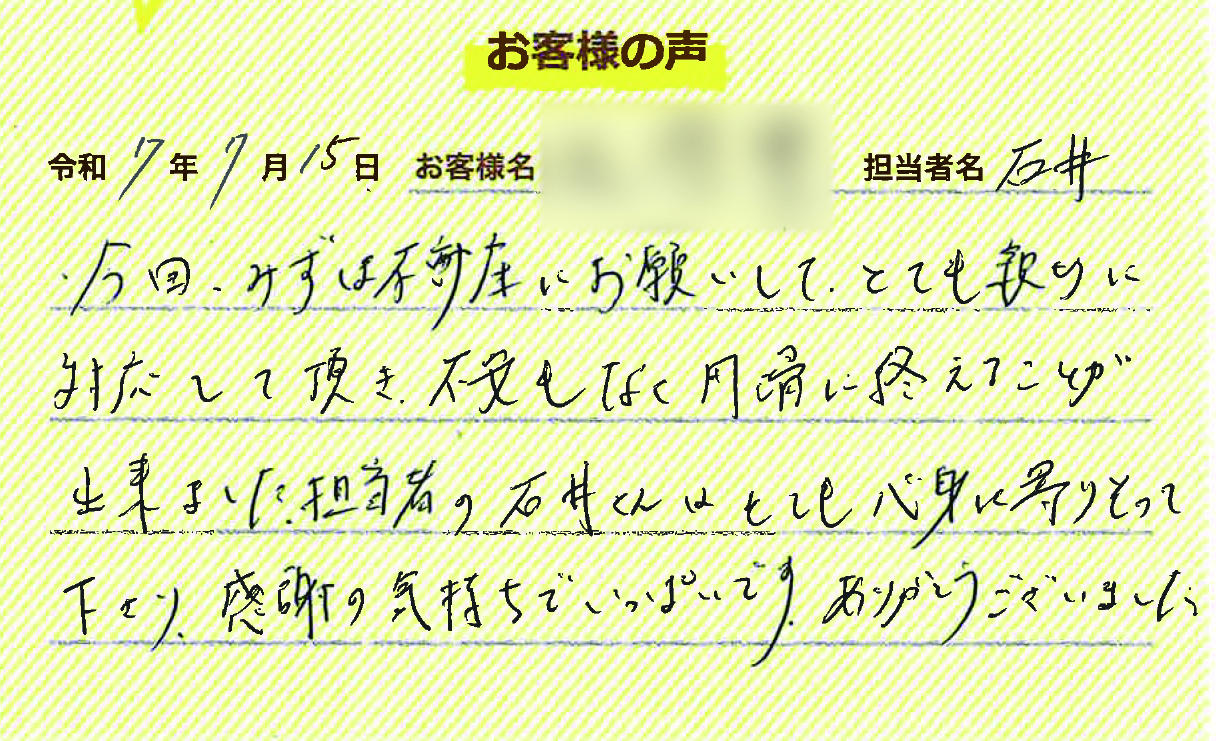 お客様の声
令和 7 年 7 月 15 日 お客様名 担当者名 石井
今回、みずほ不動産にお願いして、とても親切に
対応して頂き、不安もなく円滑に終えることが
出来ました。担当者の石井さんはとても心身に寄りそって
下さり、感謝の気持ちでいっぱいです。ありがとうございました